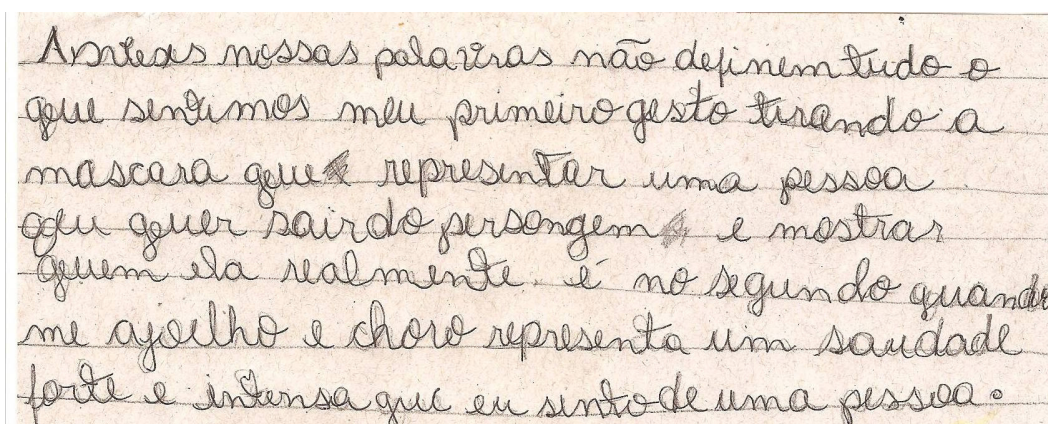 nossas palavras não definem tudo o
que sentimos meu primeiro gesto tirando a
mascara que representar uma pessoa
que quer sair do persongem e mostrar
quem ela realmente é no segundo quando
me ajoelho e choro representa um saudade
forte e intensa que eu sinto de uma pessoa.